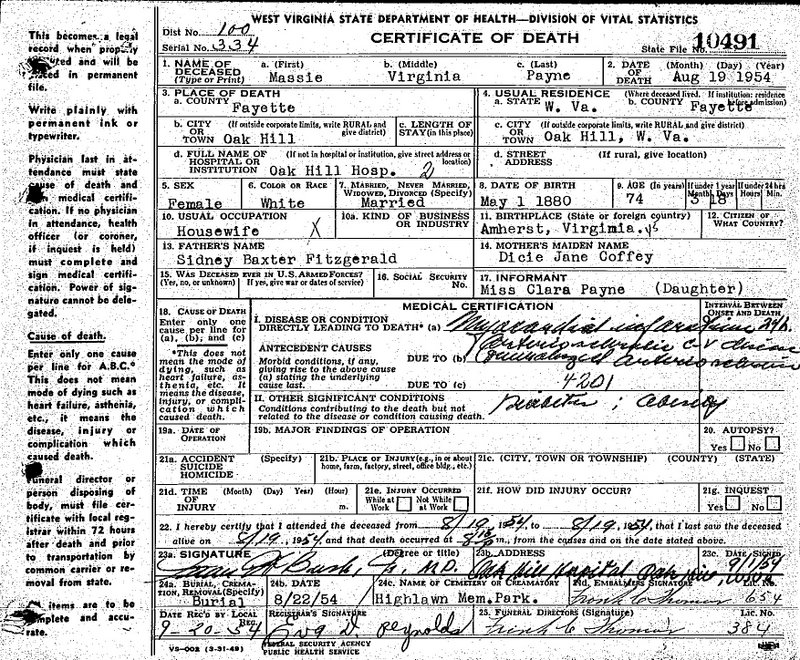 WEST VIRGINIA STATE DEPARTMENT OF HEALTH—DIVISION OF VITAL STATISTICS
CERTIFICATE OF DEATH
Dist No. 100
Serial No. 334
State File No. 10491
1. NAME OF DECEASED (Type or Print) a. (First) Massie b. (Middle) Virginia c. (Last) Payne
2. DATE OF DEATH (Month) (Day) (Year) Aug 19 1954
3. PLACE OF DEATH
a. COUNTY Fayette
4. USUAL RESIDENCE (Where deceased lived. If institution: residence before admission)
a. STATE W. Va. b. COUNTY Fayette
b. CITY OR TOWN (If outside corporate limits, write RURAL and give district) Oak Hill
c. LENGTH OF STAY (in this place)
c. CITY OR TOWN (If outside corporate limits, write RURAL and give district) Oak Hill, W. Va.
d. FULL NAME OF HOSPITAL OR INSTITUTION (If not in hospital or institution, give street address or location) Oak Hill Hosp. 2
d. STREET ADDRESS (If rural, give location)
5. SEX Female
6. COLOR OR RACE White
7. MARRIED, NEVER MARRIED, WIDOWED, DIVORCED (Specify) Married
8. DATE OF BIRTH May 1 1880
9. AGE (In years) 74 If under 1 year Months Days 3 18 If under 24 hrs Hours Min.
10. USUAL OCCUPATION Housewife X
10a. KIND OF BUSINESS OR INDUSTRY
11. BIRTHPLACE (State or foreign country) Amherst, Virginia.
12. CITIZEN OF WHAT COUNTRY?
13. FATHER'S NAME Sidney Baxter Fitzgerald
14. MOTHER'S MAIDEN NAME Dicie Jane Coffey
15. WAS DECEASED EVER IN U.S. ARMED FORCES? (Yes, no, or unknown) (If yes, give war or dates of service)
16. SOCIAL SECURITY No.
17. INFORMANT Miss Clara Payne (Daughter)
MEDICAL CERTIFICATION
18. CAUSE OF DEATH
Enter only one cause per line for (a), (b); and (c)
*This does not mean the mode of dying, such as heart failure, asthenia, etc. It means the disease, injury, or complication which caused death.
I. DISEASE OR CONDITION DIRECTLY LEADING TO DEATH* (a) Myocardial infarction 24h.
INTERVAL BETWEEN ONSET AND DEATH
ANTECEDENT CAUSES
Morbid conditions, if any, giving rise to the above cause (a) stating the underlying cause last.
DUE TO (b) arteriosclerotic C-V disease
generalized arteriosclerosis
DUE TO (c)
4201
II. OTHER SIGNIFICANT CONDITIONS
Conditions contributing to the death but not related to the disease or condition causing death.
Diabetes; obesity
19a. DATE OF OPERATION
19b. MAJOR FINDINGS OF OPERATION
20. AUTOPSY? Yes No
21a. ACCIDENT SUICIDE HOMICIDE (Specify)
21b. PLACE OF INJURY (e.g., in or about home, farm, factory, street, office bldg., etc.)
21c. (CITY, TOWN OR TOWNSHIP) (COUNTY) (STATE)
21d. TIME OF INJURY (Month) (Day) (Year) (Hour) m.
21e. INJURY OCCURRED While at Work Not While at Work
21f. HOW DID INJURY OCCUR?
21g. INQUEST Yes No
22. I hereby certify that I attended the deceased from 8/19, 1954 to 8/19, 1954, that I last saw the deceased
alive on 8/19, 1954 and that death occurred at m., from the causes and on the date stated above.
23a. SIGNATURE (Degree or title) Bush, Jr. M.D.
23b. ADDRESS Oak Hill Hospital Oak Hill,
23c. DATE SIGNED 9/1/54
24a. BURIAL, CREMATION, REMOVAL (Specify) Burial
24b. DATE 8/22/54
24c. NAME OF CEMETERY OR CREMATORY Highlawn Mem. Park.
EMBALMERS SIGNATURE Frank C Thomas Lic. No. 654
DATE REC'D BY LOCAL REG. 9-20-54
REGISTRAR'S SIGNATURE Eva D. Reynolds
25. FUNERAL DIRECTORS (Signature) Frank C Thomas Lic. No. 384
VS-002 (3-31-49)
FEDERAL SECURITY AGENCY
PUBLIC HEALTH SERVICE
This becomes a legal
record when properly
and will be
in permanent
file.
Write plainly with
permanent ink or
typewriter.
Physician last in at-
tendance must state
cause of death and
medical certifi-
cation. If no physician
in attendance, health
officer (or coroner,
if inquest is held)
must complete and
sign medical certifi-
cation. Power of sig-
nature cannot be dele-
gated.
Cause of death.
Enter only one cause
per line for A.B.C.*
This does not mean
mode of dying such as
heart failure, asthenia,
etc., it means the
disease, injury or
complication which
caused death.
Funeral director or
person disposing of
body, must file cer-
tificate with local reg-
istrar within 72 hours
after death and prior
to transportation by
common carrier or re-
moval from state.
items are to be
complete and accu-
rate.